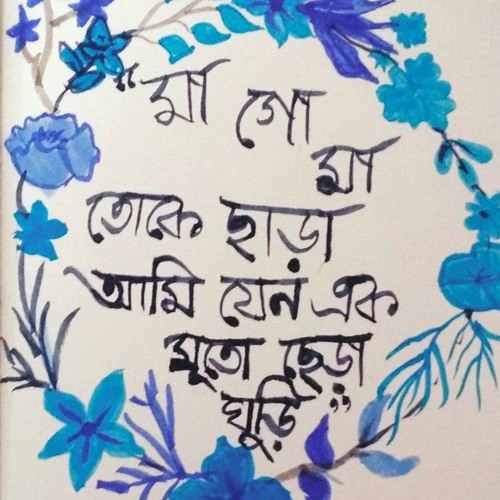 "মা গো
মা
তোকে ছাড়া
আমি যেন এক
সূতো ছেড়া
ঘুড়ি"